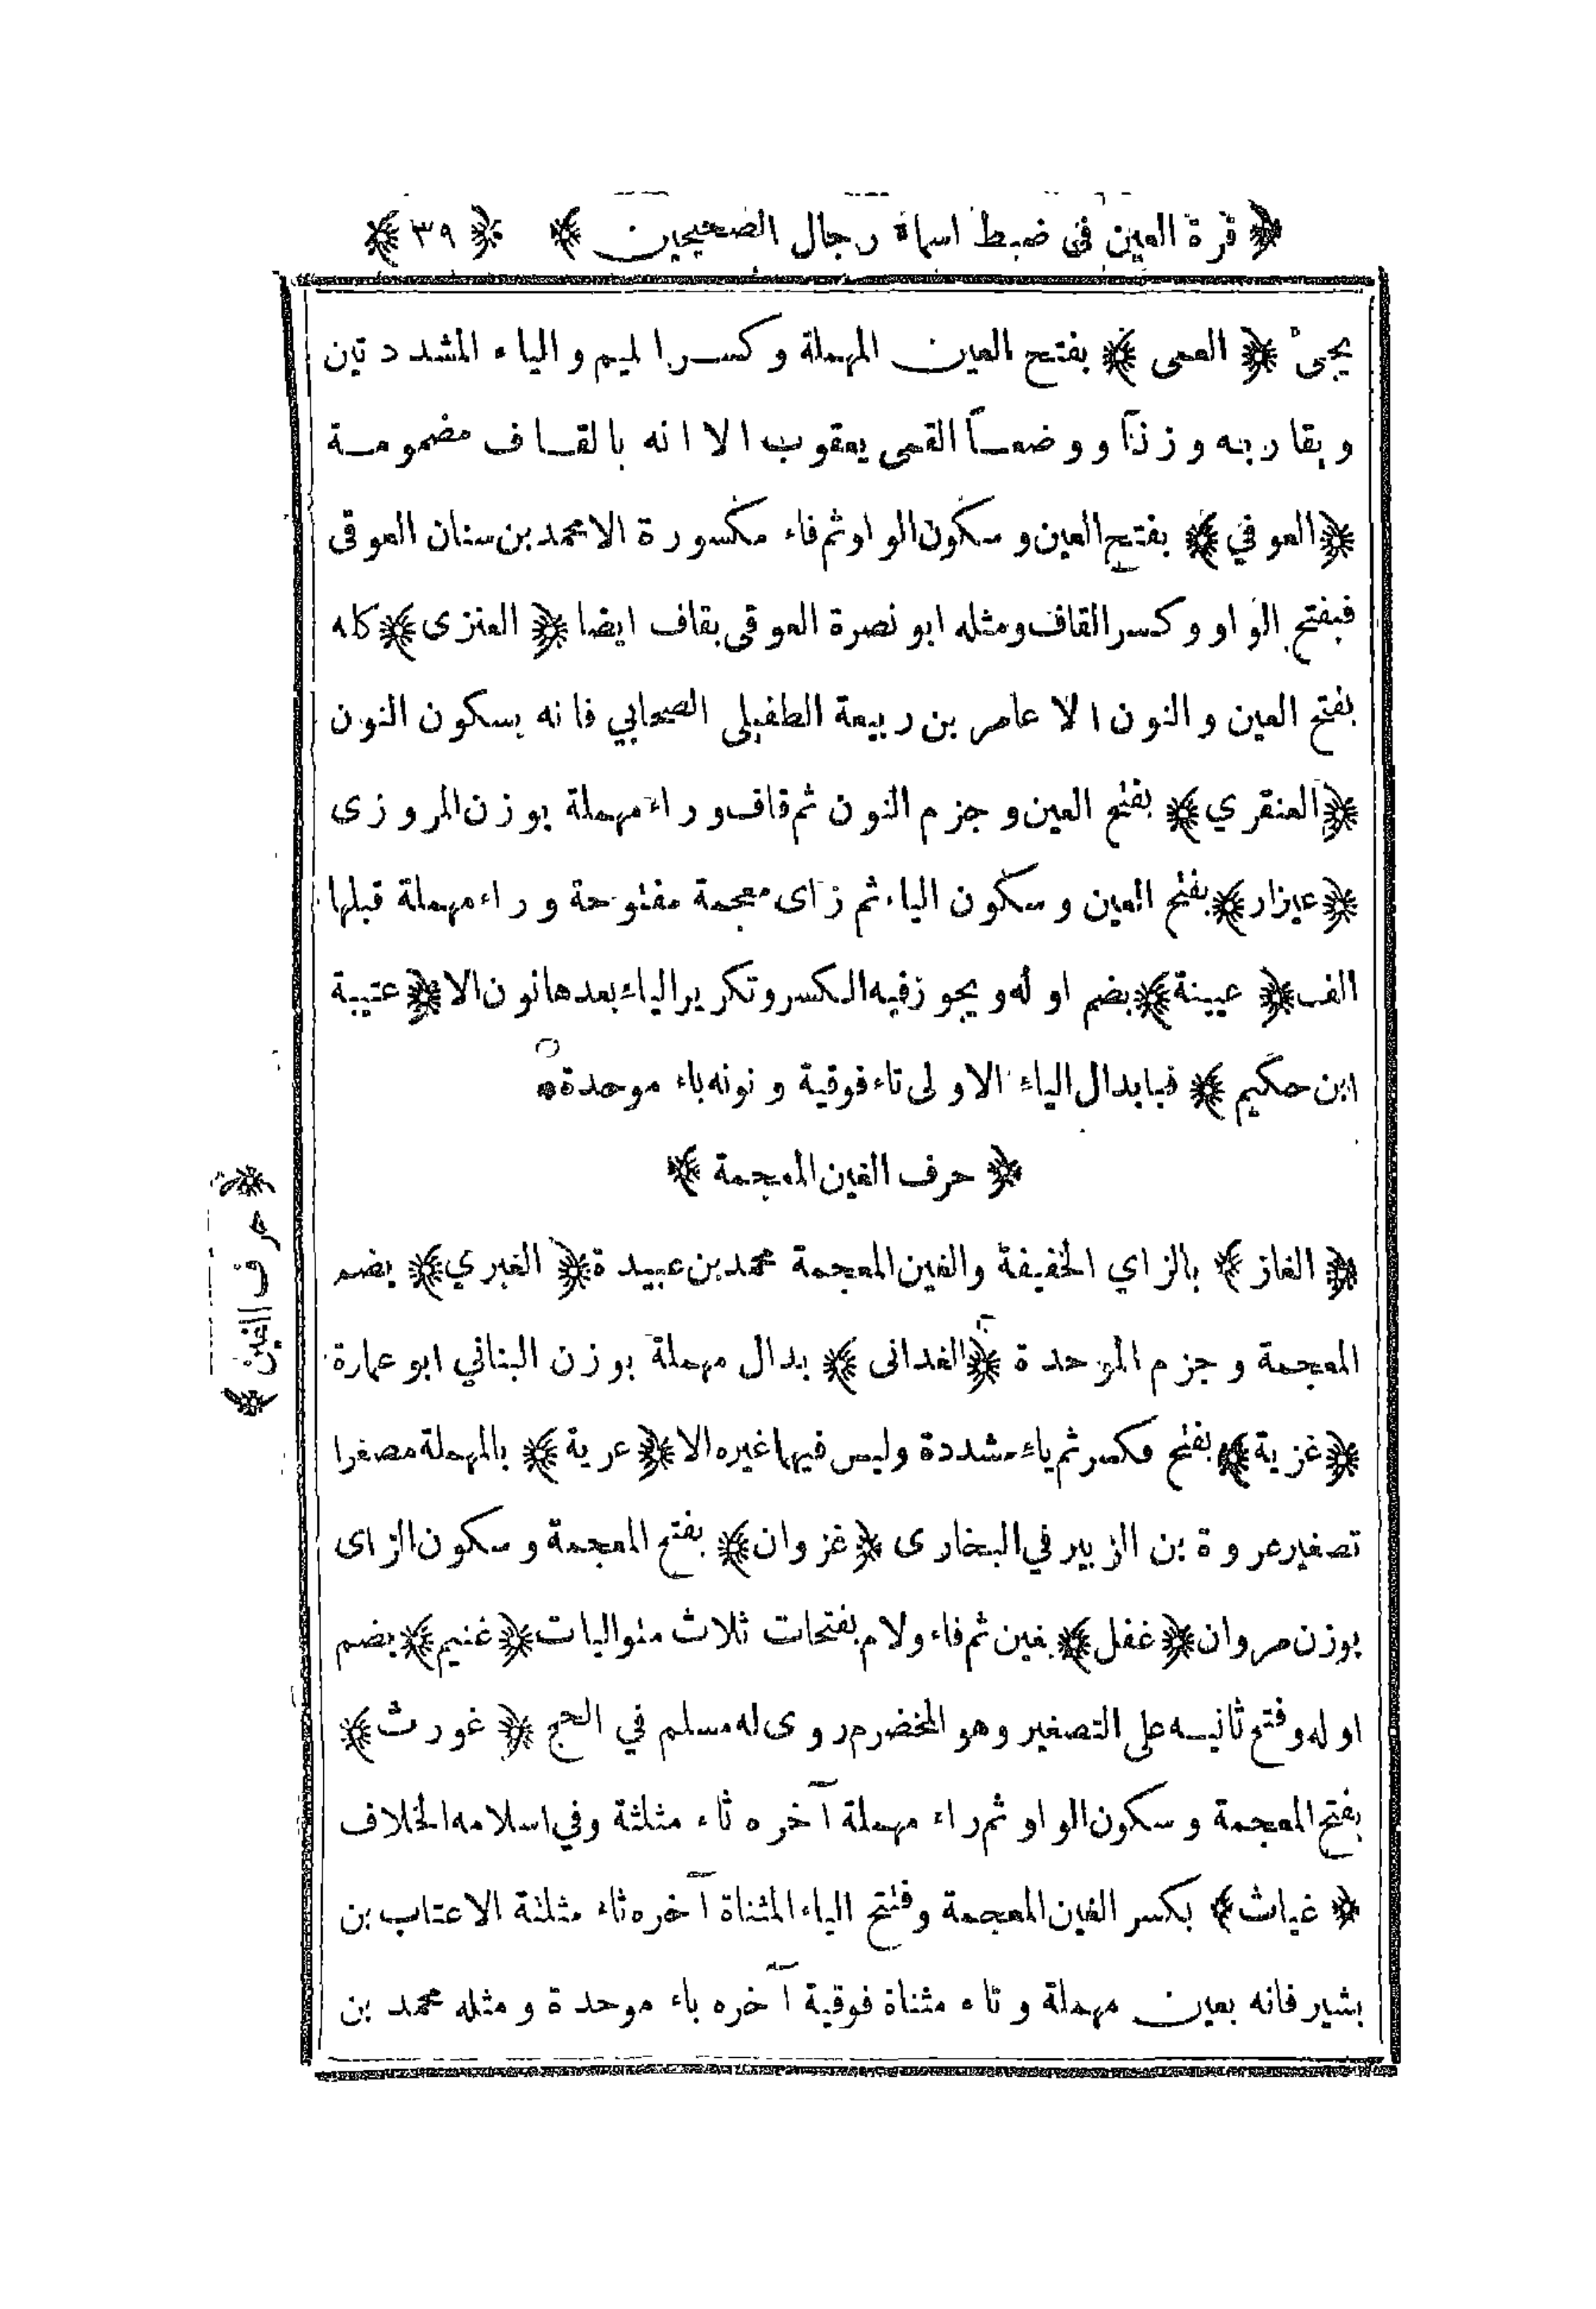 ﴿ قرة العين فى ضبط اسماء رجال الصحيحين ﴾ ﴿ ٣٩ ﴾
يجئ ﴿ العمى ﴾ بفتح العين المهملة وكسر الميم والياء المشددتين
ويقاربه وزناً ووضعاً القمى يعقوب الا انه بالقاف مضمومة
﴿ العوفي ﴾ بفتح العين وسكون الواو ثم فاء مكسورة الا محمد بن سنان العوقى
فبفتح الواو وكسر القاف ومثله ابو نصرة العوقى بقاف ايضا ﴿ العنزى ﴾ كله
بفتح العين والنون الا عامر بن ربيعة الطفيلى الصحابي فانه بسكون النون
﴿ العنقري ﴾ بفتح العين وجزم النون ثم قاف وراء مهملة بوزن المروزى
﴿ عيزار ﴾ بفتح العين وسكون الياء ثم زاى معجمة مفتوحة وراء مهملة قبلها
الف ﴿ عيينة ﴾ بضم اوله ويجوز فيه الكسر وتكرير الياء بعدها نون الا ﴿ عتيبة
ابن حكيم ﴾ فبابدال الياء الاولى تاء فوقية ونونه باء موحدة
﴿ حرف الغين المعجمة ﴾
﴿ الغاز ﴾ بالزاي الخفيفة والغين المعجمة محمد بن عبيدة ﴿ الغبري ﴾ بضم
المعجمة وجزم الموحدة ﴿ الغدانى ﴾ بدال مهملة بوزن البناني ابو عمارة
﴿ غزية ﴾ بفتح فكسر ثم ياء مشددة وليس فيها غيره الا ﴿ عرية ﴾ بالمهملة مصغرا
تصغير عروة بن الزبير في البخارى ﴿ غزوان ﴾ بفتح المعجمة وسكون الزاى
بوزن مروان ﴿ غفل ﴾ بغين ثم فاء ولام بفتحات ثلاث متواليات ﴿ غنيم ﴾ بضم
اوله وفتح ثانيه على التصغير وهو المخضرم روى له مسلم في الحج ﴿ غورث ﴾
بفتح المعجمة وسكون الواو ثم راء مهملة آخره ثاء مثلثة وفي اسلامه الخلاف
﴿ غياث ﴾ بكسر الغين المعجمة وفتح الياء المثناة آخره ثاء مثلثة الا عتاب بن
بشير فانه بعين مهملة وتاء مثناة فوقية آخره باء موحدة ومثله محمد بن
﴿ حرف الغين ﴾